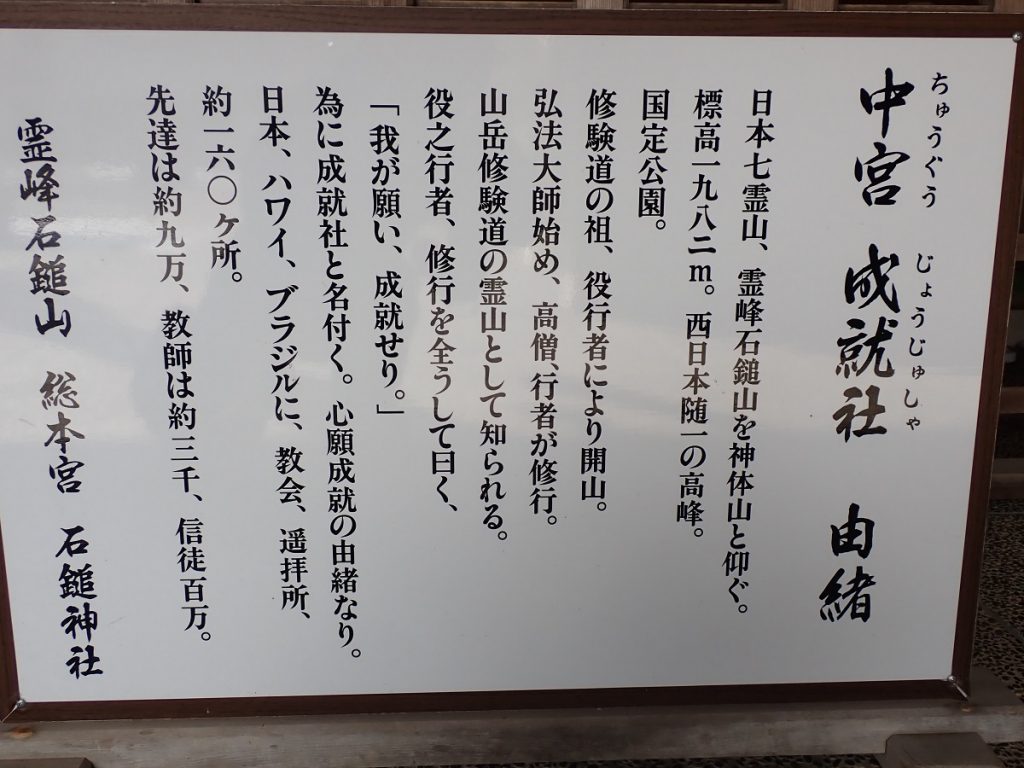 中宮 成就社 由緒
ちゅうぐう じょうじゅしゃ
日本七霊山、霊峰石鎚山を神体山と仰ぐ。
標高一九八二m。西日本随一の高峰。
国定公園。
修験道の祖、役行者により開山。
弘法大師始め、高僧、行者が修行。
山岳修験道の霊山として知られる。
役之行者、修行を全うして曰く、
「我が願い、成就せり。」
為に成就社と名付く。心願成就の由緒なり。
日本、ハワイ、ブラジルに、教会、遥拝所、
約一六〇ヶ所。
先達は約九万、教師は約三千、信徒百万。
霊峰石鎚山 総本宮 石鎚神社